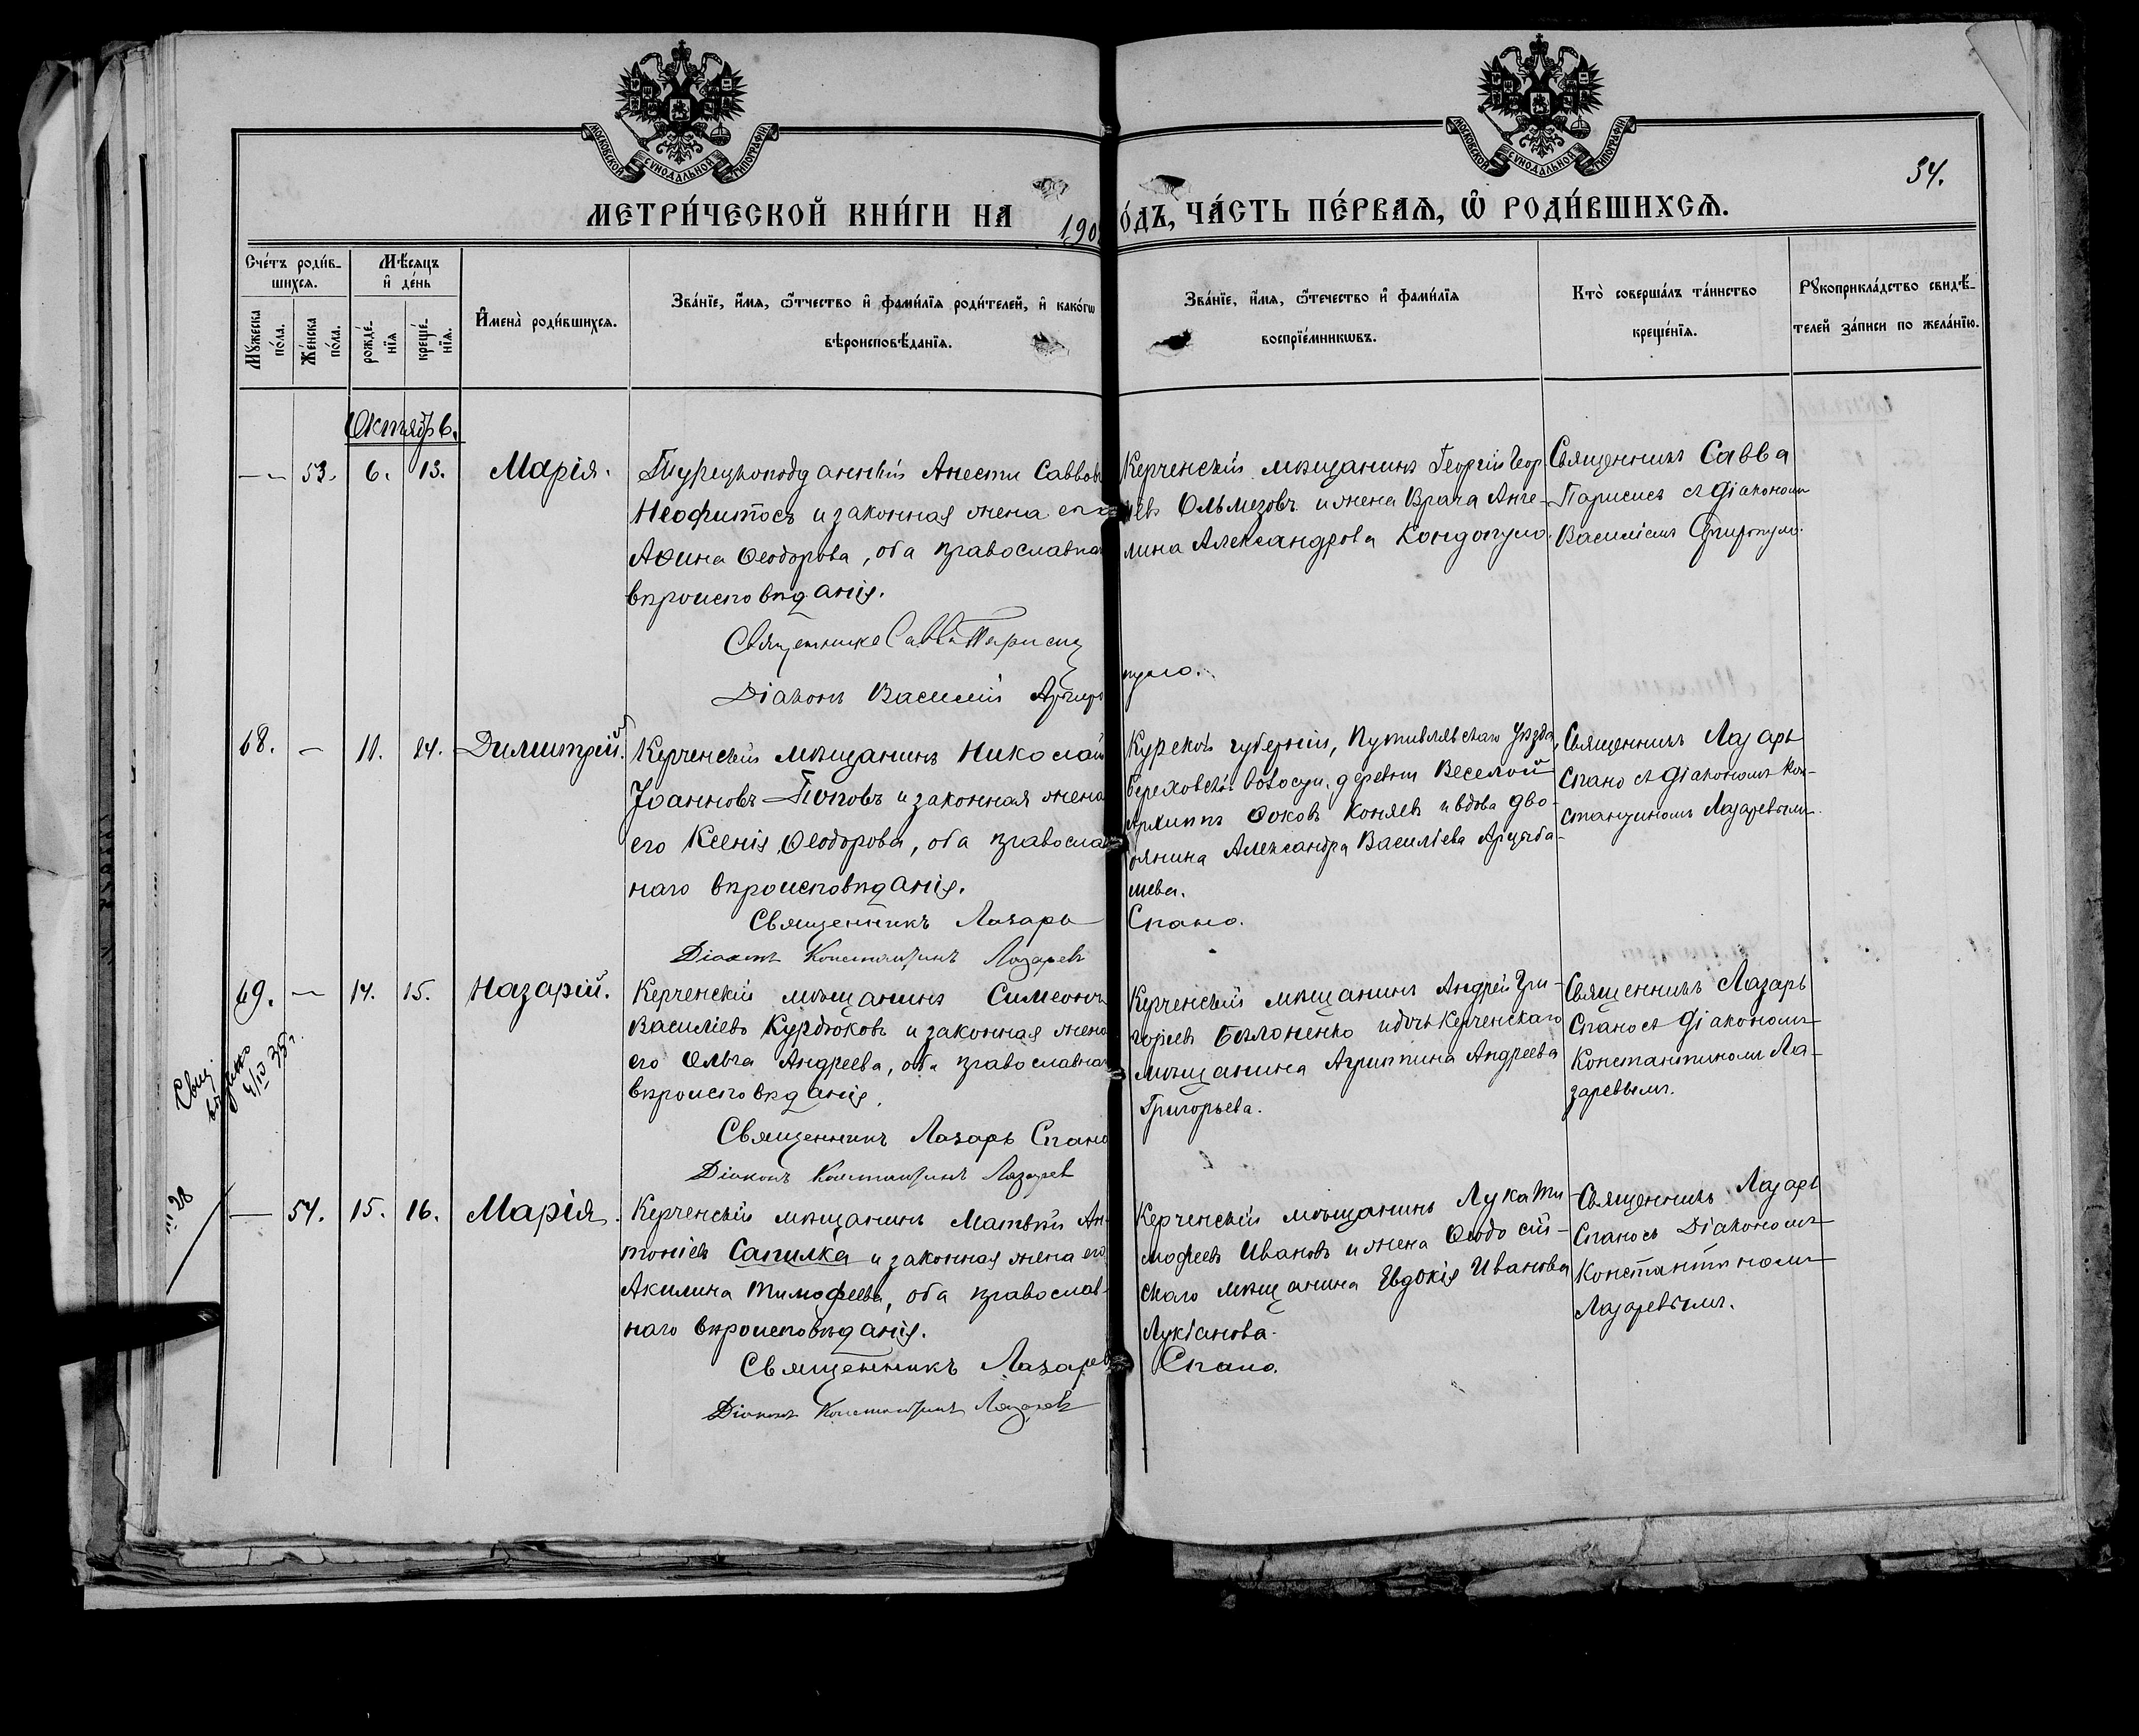 МОСКОВСКОЙ СѴНОДАЛЬНОЙ ТИПОГРАФІИ
МОСКОВСКОЙ СѴНОДАЛЬНОЙ ТИПОГРАФІИ
34.
МЕТРИ́ЧЕСКОЙ КНИ́ГИ НА 190
О́ДЪ, ЧА́СТЬ ПЕ́РВАѦ, Ѡ҆ РОДИ́ВШИХСѦ.
Сче́тъ роди́в-
шихсѧ.
Мꙋ́жеска
по́ла.
Же́нска
по́ла.
Мѣ́сѧцъ
и҆ де́нь
рожде́-
нїѧ
креще́-
нїѧ.
И҆мена̀ роди́вшихсѧ.
Зва́нїе, и҆́мѧ, ѻ҆́тчество и҆ фами́лїѧ роди́телей, и҆ како́гѡ
вѣроисповѣ́данїѧ.
Зва́нїе, и҆́мѧ, ѻ҆́течество и҆ фами́лїѧ
воспрїе́мникѡвъ.
Кто̀ соверша́лъ та́инство
креще́нїѧ.
Рꙋкоприкла́дство свидѣ́-
телей за́писи по жела́нїю.
Октябрь.
— 53. 6. 13. Марія.
Турецкоподданный Анести Саввовъ
Неофитосъ и законная жена его
Аѳина Ѳеодорова, оба православнаго
вѣроисповѣданія.
Священникъ Савва Парисис
Діаконъ Василій Аргиро
Керченскій мѣщанинъ Георгій Геор
іевъ Ольмезовъ и жена Врача Анге-
лина Александрова Кондопуло.
пуло.
Священникъ Савва
Парисисъ съ Діакономъ
Василіемъ
68. — 11. 24. Димитрій.
Керченскій мѣщанинъ Николай
Іоанновъ Поповъ и законная жена
его Ксенія Ѳеодорова, оба православ
наго вѣроисповѣданія.
Священникъ Лазарь
Діаконъ Константинъ Лазаревъ
Курской губерніи, Путивльскаго уѣзда,
волости, деревни Веселой
Ѳоковъ Коняевъ и вдова дво-
рянина Александра Васильева Арцыба-
шева.
Спано.
Священникъ Лазарь
Спано съ Діакономъ Кон-
стантиномъ Лазаревымъ.
69. — 14. 15. Назарій.
Керченскій мѣщанинъ Симеонъ
Василіевъ Курдюковъ и законная жена
его Ольга Андреева, оба православнаго
вѣроисповѣданія.
Священникъ Лазарь Спано
Діаконъ Константинъ Лазаревъ
Керченскій мѣщанинъ Андрей Гри-
горіевъ Бѣлоненко и дочь Керченскаго
мѣщанина Агриппина Андреева
Григорьева.
Священникъ Лазарь
Спано съ Діакономъ
Константиномъ Ла-
заревымъ.
— 54. 15. 16. Марія.
Керченскій мѣщанинъ Матвѣй Ан-
тоніевъ Сапилка и законная жена его
Акилина Тимофеева, оба православ-
наго вѣроисповѣданія.
Священникъ Лазарь
Діаконъ Константинъ Лазаревъ
Керченскій мѣщанинъ Лука Ти
мофеевъ Ивановъ и жена Ѳеодосій-
скаго мѣщанина Евдокія Иванова
Лукіанова.
Спано.
Священникъ Лазарь
Спано съ Діакономъ
Константиномъ
Лазаревымъ.